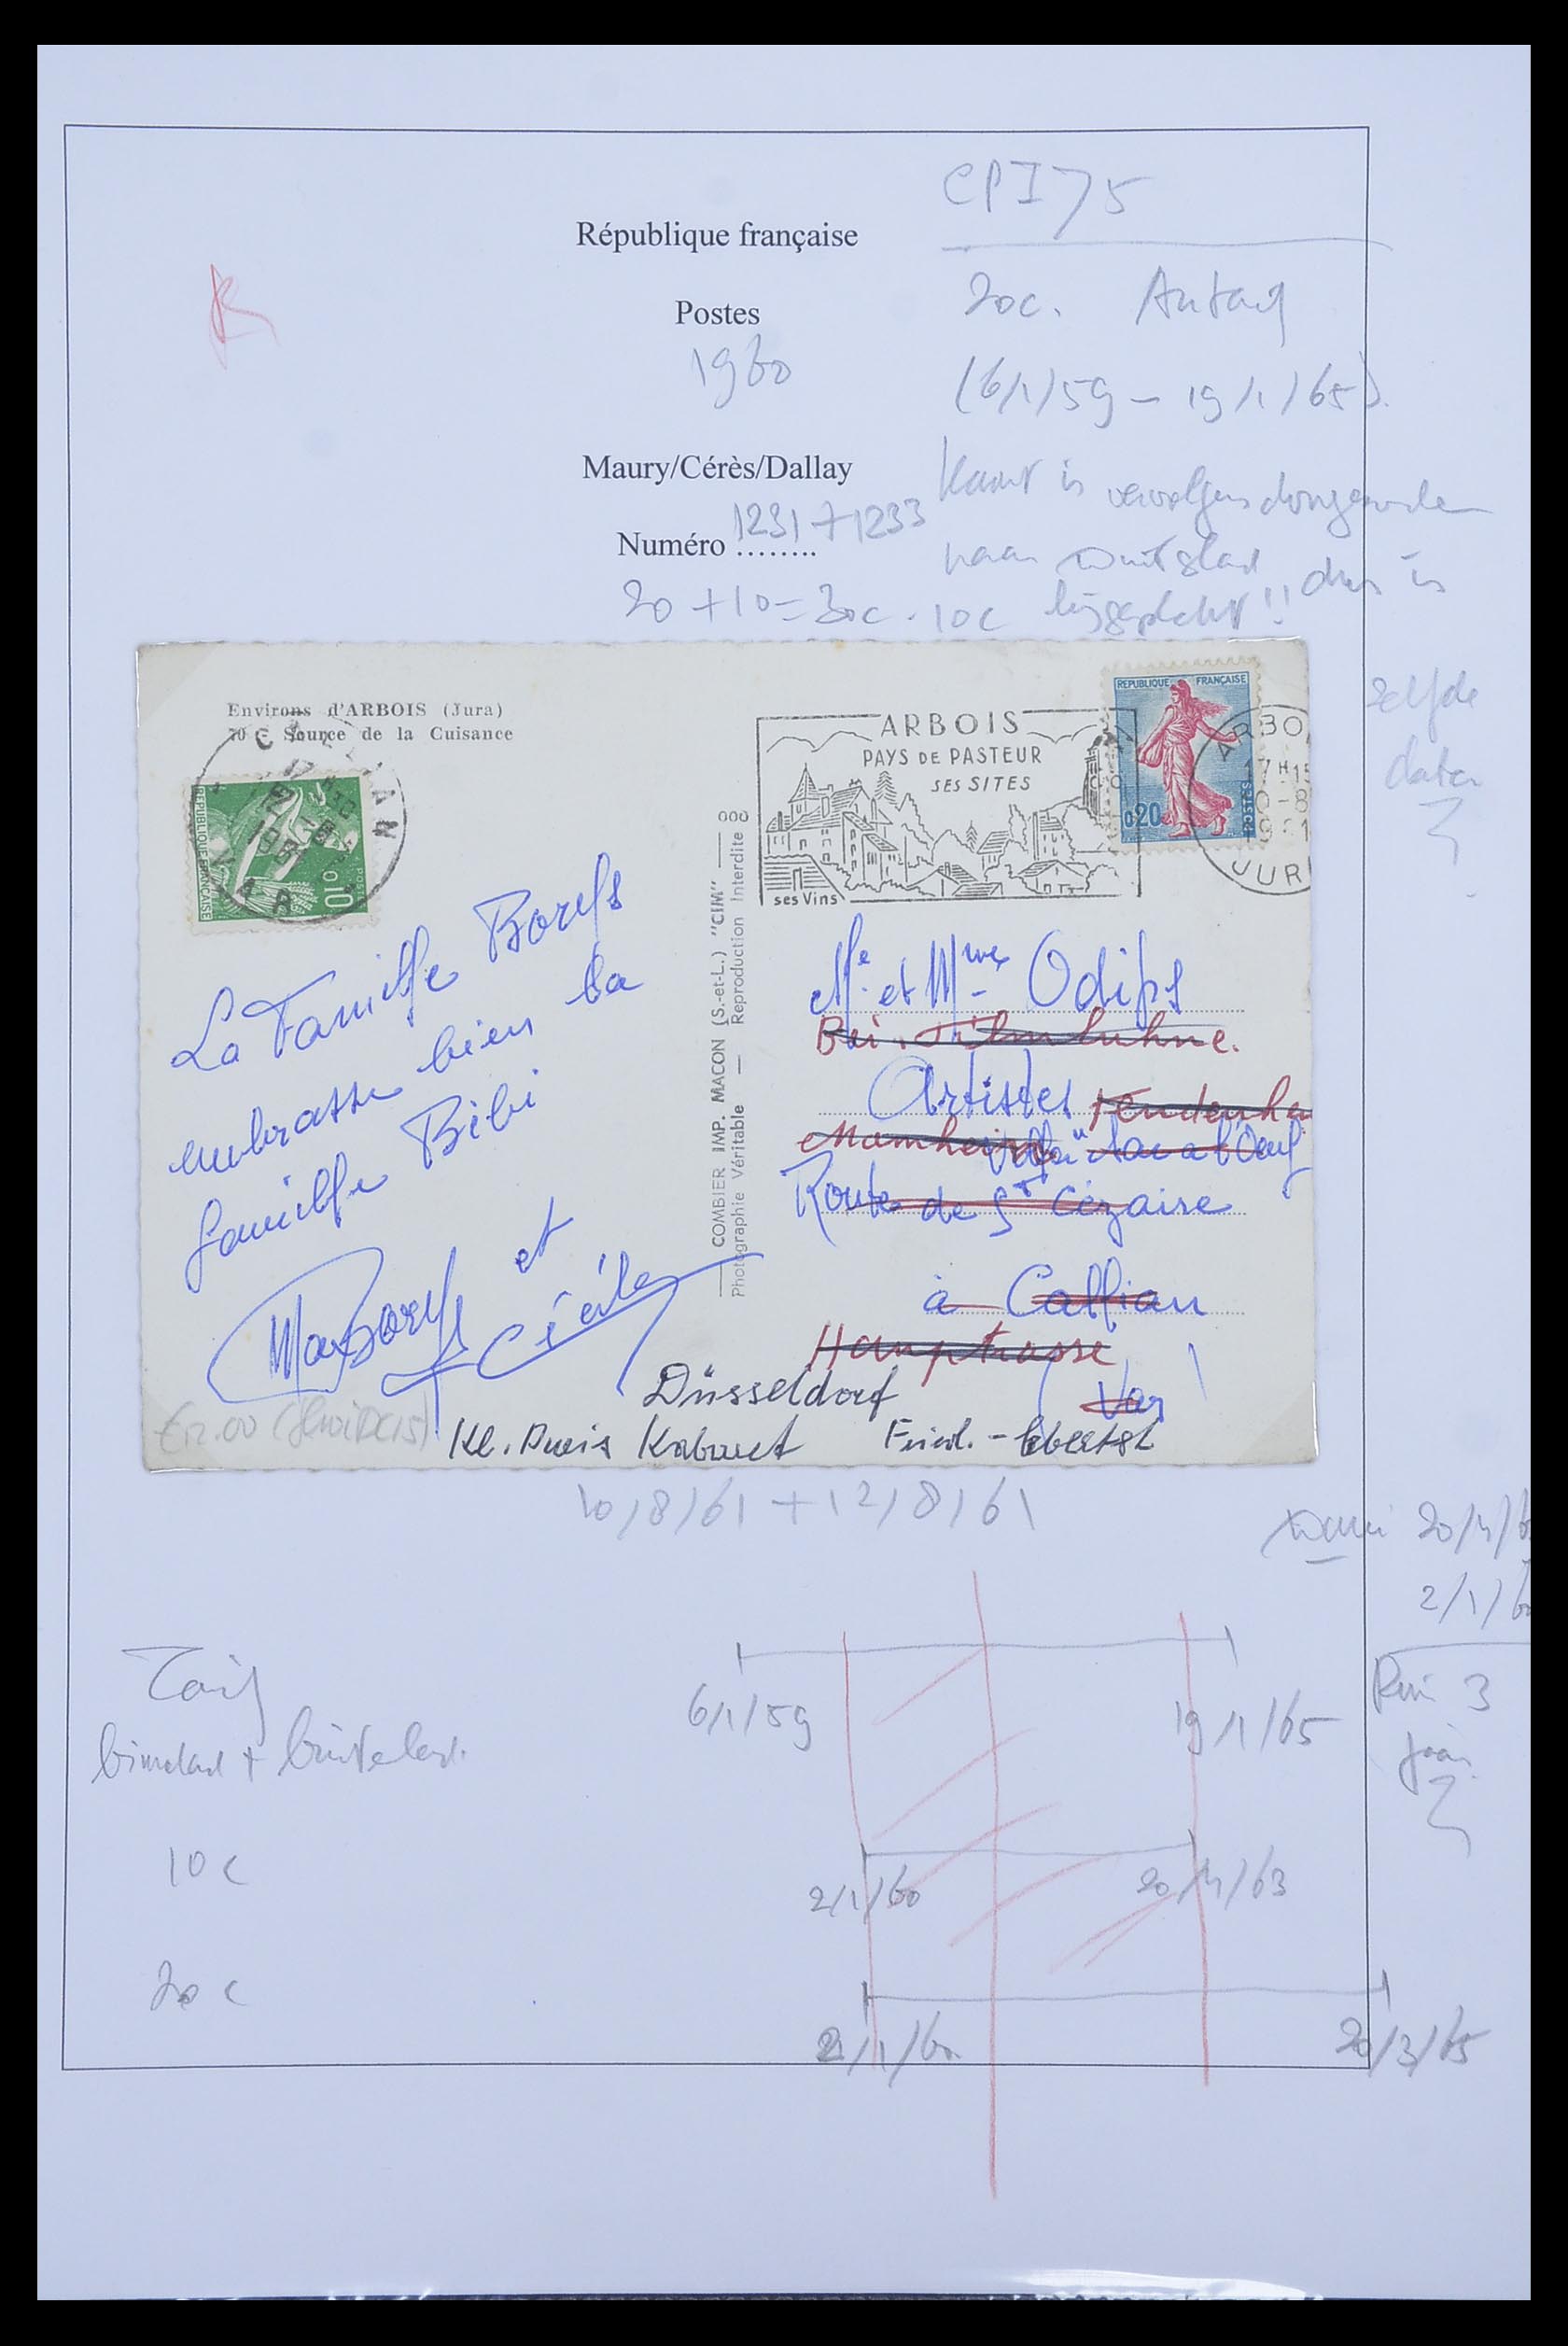 CPI75
République française
20c.
Postes
1960
(6/1/59 - 19/1/65).
Maury/Cérès/Dallay
Kaart is vervolgens doorgezonden
Numéro ........ 1231 + 1233
naar Duitsland, dus is
20 + 10 = 30c. 10c bijgeplakt!!
zelfde
data
Environs d'ARBOIS (Jura)
70 - Source de la Cuisance
CALLIAN
17H
12-8
1961
VAR
REPUBLIQUE FRANCAISE
0,10
POSTES
ARBOIS
PAYS DE PASTEUR
SES SITES
ses Vins
REPUBLIQUE FRANÇAISE
0,20
POSTES
ARBO
17H15
0-8
JUR
COMBIER IMP. MACON (S.-et-L.) "CIM"
Photographie Véritable — Reproduction Interdite
La Famille Borels
embrasse bien la
famille Bibi
et
Cécile
Mr et Mme
Bei
Artistes
Mannheim
Route de St Cézaire
à Callian
Hauptstrasse
Var
Düsseldorf
Kl. Paris Kabarett Friedr. - Ebertst
€12.00
10/8/61 + 12/8/61
20/4/6
2/1/6
Tarif
6/1/59
19/1/65
3
jaar
binnenland + buitenland.
10c
2/1/60
20/4/63
20c
2/1/60
20/3/65